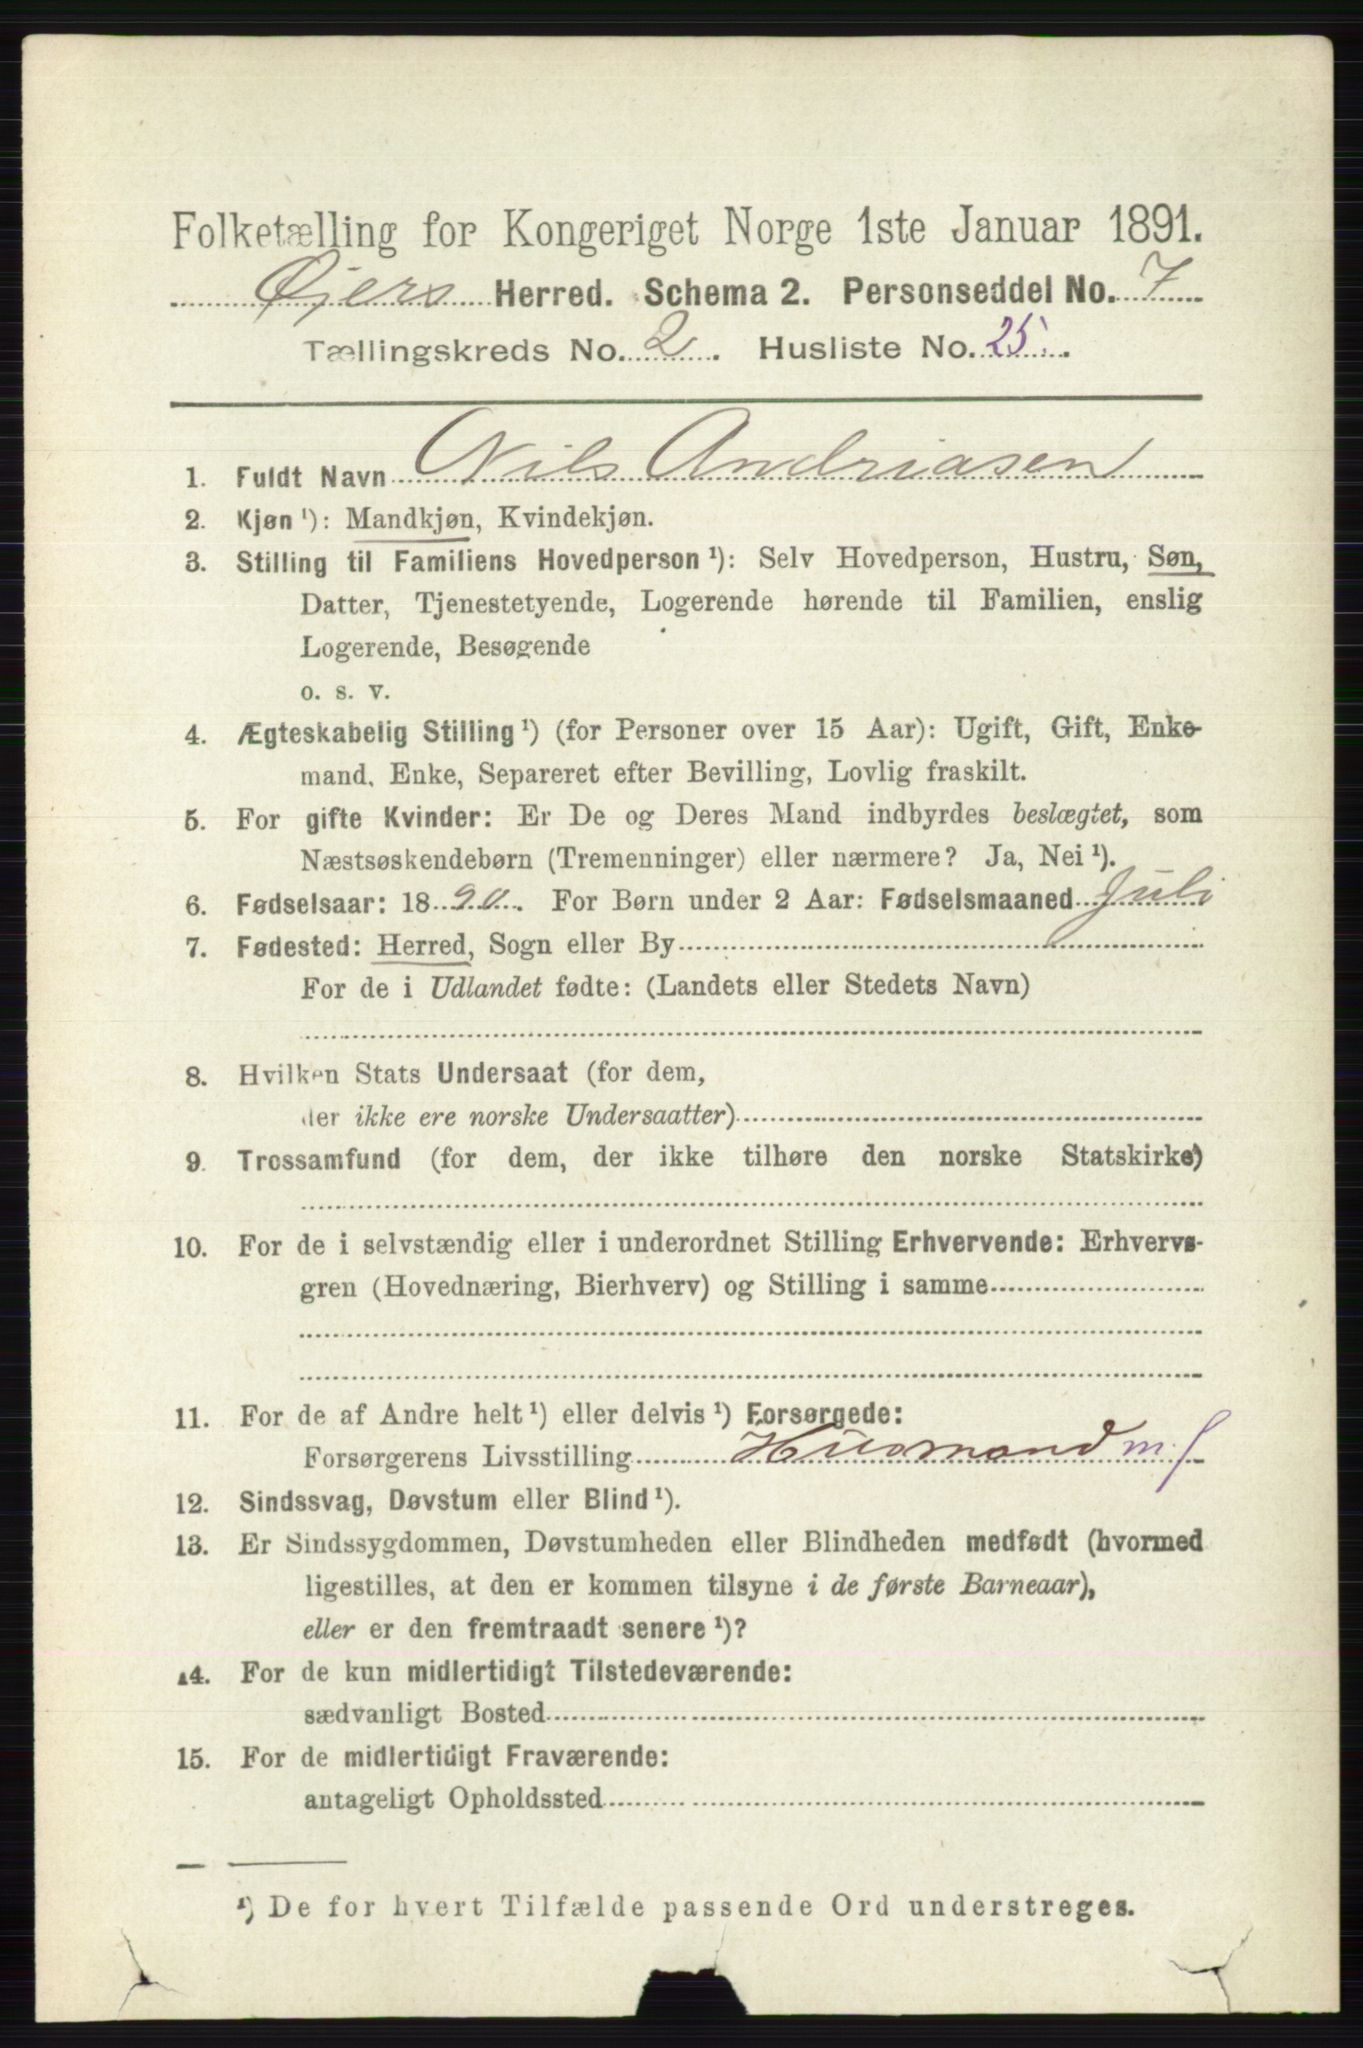 Folketælling for Kongeriget Norge 1ste Januar 1891.
Øjers Herred. Schema 2. Personseddel No. 7
Tællingskreds No. 2. Husliste No. 25.
1. Fuldt Navn Nils Andriasen
2. Kjøn ¹): Mandkjøn, Kvindekjøn.
3. Stilling til Familiens Hovedperson ¹): Selv Hovedperson, Hustru, Søn,
Datter, Tjenestetyende, Logerende hørende til Familien, enslig
Logerende, Besøgende
o. s. v.
4. Ægteskabelig Stilling ¹) (for Personer over 15 Aar): Ugift, Gift, Enke-
mand, Enke, Separeret efter Bevilling, Lovlig fraskilt.
5. For gifte Kvinder: Er De og Deres Mand indbyrdes beslægtet, som
Næstsøskendebørn (Tremenninger) eller nærmere? Ja, Nei ¹).
6. Fødselsaar: 1890. For Børn under 2 Aar: Fødselsmaaned Juli
7. Fødested: Herred, Sogn eller By
For de i Udlandet fødte: (Landets eller Stedets Navn)
8. Hvilken Stats Undersaat (for dem,
der ikke ere norske Undersaatter)
9. Trossamfund (for dem, der ikke tilhøre den norske Statskirke)
10. For de i selvstændig eller i underordnet Stilling Erhvervende: Erhvervs-
gren (Hovednæring, Bierhverv) og Stilling i samme
11. For de af Andre helt ¹) eller delvis ¹) Forsørgede:
Forsørgerens Livsstilling Husmand m. J
12. Sindssvag, Døvstum eller Blind ¹).
13. Er Sindssygdommen, Døvstumheden eller Blindheden medfødt (hvormed
ligestilles, at den er kommen tilsyne i de første Barneaar),
eller er den fremtraadt senere ¹)?
14. For de kun midlertidigt Tilstedeværende:
sædvanligt Bosted
15. For de midlertidigt Fraværende:
antageligt Opholdssted
¹) De for hvert Tilfælde passende Ord understreges.